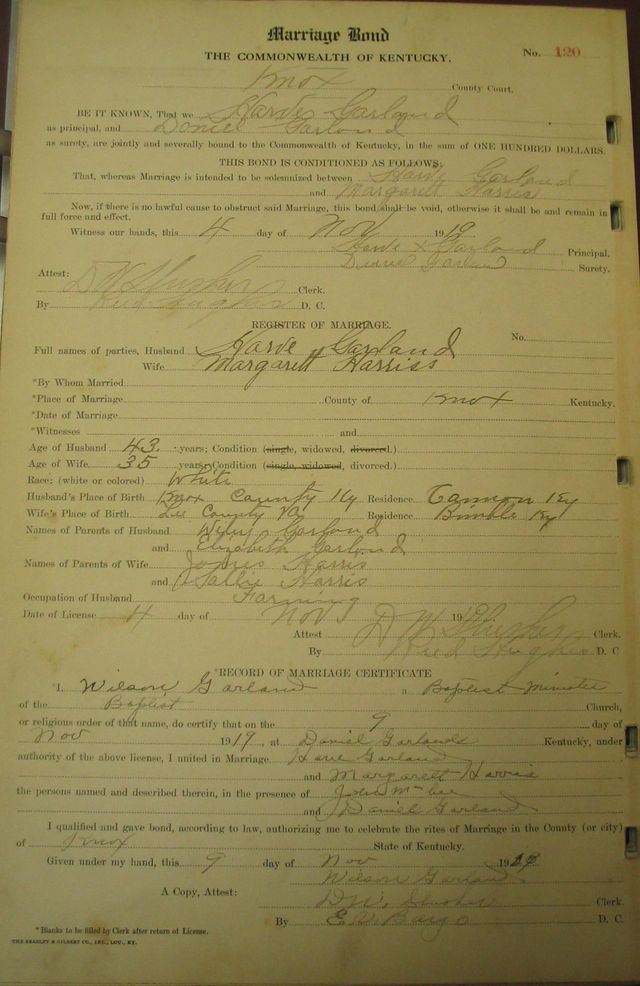 Marriage Bond
THE COMMONWEALTH OF KENTUCKY.
No. 120
Knox County Court.
BE IT KNOWN, That we Harve Garland
as principal, and Daniel Garland
as surety, are jointly and severally bound to the Commonwealth of Kentucky, in the sum of ONE HUNDRED DOLLARS.
THIS BOND IS CONDITIONED AS FOLLOWS:
That, whereas Marriage is intended to be solemnized between Harve Garland
and Margarett Harris
Now, if there is no lawful cause to obstruct said Marriage, this bond shall be void, otherwise it shall be and remain in
full force and effect.
Witness our hands, this 4 day of Nov 1919
Harve x Garland Principal.
Daniel Garland Surety.
Attest:
D W Slusher Clerk.
By Reed Hughes D. C.
REGISTER OF MARRIAGE.
No.
Full names of parties, Husband Harve Garland
Wife Margarett Harriss
*By Whom Married
*Place of Marriage County of Knox Kentucky.
*Date of Marriage
*Witnesses and
Age of Husband 43 years; Condition (single, widowed, divorced.)
Age of Wife 35 years; Condition (single, widowed, divorced.)
Race: (white or colored) White
Husband's Place of Birth Knox County Ky Residence Cannon Ky
Wife's Place of Birth Lee County Va Residence Bimble Ky
Names of Parents of Husband Garland
and Elizabeth Garland
Names of Parents of Wife Harris
and Sallie Harris
Occupation of Husband Farming
Date of License 4 day of Nov 19
Attest D W Slusher Clerk.
By Reed Hughes D. C
*RECORD OF MARRIAGE CERTIFICATE
I, Wilson Garland a Baptist Minister
of the Baptist Church,
or religious order of that name, do certify that on the 9 day of
Nov 1919, at Daniel Garlands Kentucky, under
authority of the above license, I united in Marriage Harve Garland
and Margarett Harris
the persons named and described therein, in the presence of John
and Daniel Garland
I qualified and gave bond, according to law, authorizing me to celebrate the rites of Marriage in the County (or city)
of Knox State of Kentucky.
Given under my hand, this 9 day of Nov 1919
Wilson Garland
A Copy, Attest: D W. Slusher Clerk.
By E. V. Bargo D. C.
*Blanks to be filled by Clerk after return of License.
THE BRADLEY & GILBERT CO., INC., LOU., KY.